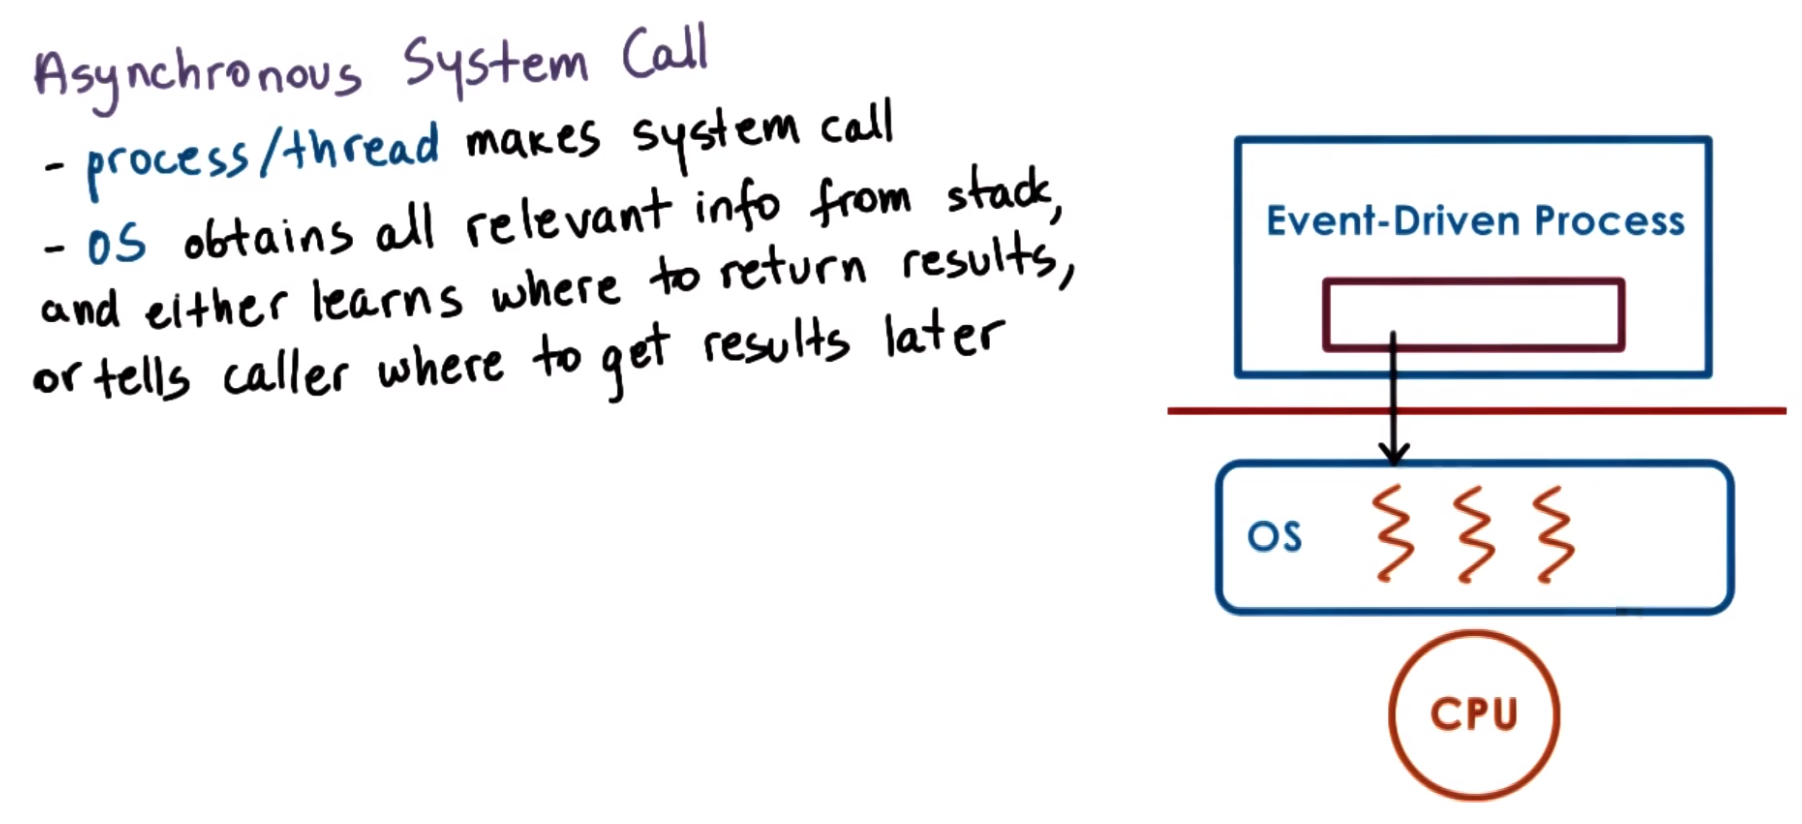 Asynchronous System Call
- process/thread makes system call
- OS obtains all relevant info from stack,
and either learns where to return results,
or tells caller where to get results later
Event-Driven Process
OS
CPU